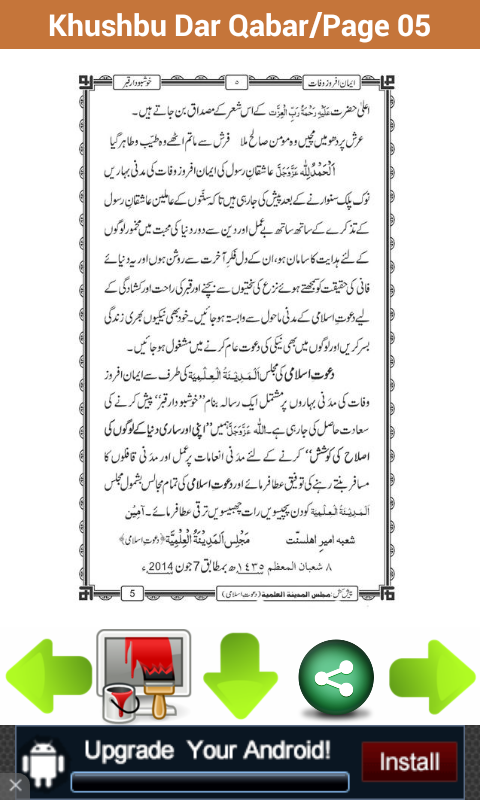 Khushbu Dar Qabar/Page 05
ایمان افروز وفات
۵
خوشبودار قبر
اعلیٰ حضرت عَلَیْہِ رَحْمَۃُ رَبِّ الْعِزَّت کے اس شعر کے مصداق بن جاتے ہیں۔
عرش پر دھومیں مچیں وہ مومن صالح ملا فرش سے ماتم اٹھے وہ طیّب و طاہر گیا
اَلْحَمْدُلِلّٰہ عَزَّوَجَلَّ عاشقانِ رسول کی ایمان افروز وفات کی مدنی بہاریں
نوک پلک سنوارنے کے بعد پیش کی جارہی ہیں تاکہ سنّتوں کے عاملین عاشقانِ رسول
کے تذکرے کے ساتھ ساتھ بے عمل اور دین سے دور دنیا کی محبت میں مخمور لوگوں
کے لئے ہدایت کا سامان ہو، ان کے دل فکرِ آخرت سے روشن ہوں اور یہ دنیائے
فانی کی حقیقت کو سمجھتے ہوئے نزع کی سختیوں سے بچنے اور قبر کی راحت اور کشادگی کے
لیے دعوتِ اسلامی کے مدنی ماحول سے وابستہ ہوجائیں۔ خود بھی نیکیوں بھری زندگی
بسر کریں اور لوگوں میں بھی نیکی کی دعوت عام کرنے میں مشغول ہوجائیں۔
دعوتِ اسلامی کی مجلس اَلْمَدِیْنَۃُ الْعِلْمِیَّۃ کی طرف سے ایمان افروز
وفات کی مدنی بہاروں پر مشتمل ایک رسالہ بنام ’’خوشبودار قبر‘‘ پیش کرنے کی
سعادت حاصل کی جارہی ہے۔ اللہ عَزَّوَجَلَّ ہمیں ’’اپنی اور ساری دنیا کے لوگوں کی
اصلاح کی کوشش‘‘ کرنے کے لئے مدنی انعامات پر عمل اور مدنی قافلوں کا
مسافر بنتے رہنے کی توفیق عطا فرمائے اور دعوتِ اسلامی کی تمام مجالس بشمول مجلس
اَلْمَدِیْنَۃُ الْعِلْمِیَّۃ کو دن پچیسویں رات چھبیسویں ترقی عطا فرمائے۔ آمین
شعبہ امیرِ اہلسنّت مَجْلِس اَلْمَدِیْنَۃُ الْعِلْمِیَّۃ ﴿دعوتِ اسلامی﴾
۸ شعبان المعظم ۱۴۳۵ھ بمطابق 7 جون 2014ء
پیش کش: مجلس المدینۃ العلمیۃ (دعوتِ اسلامی)
5
Upgrade Your Android!
Install